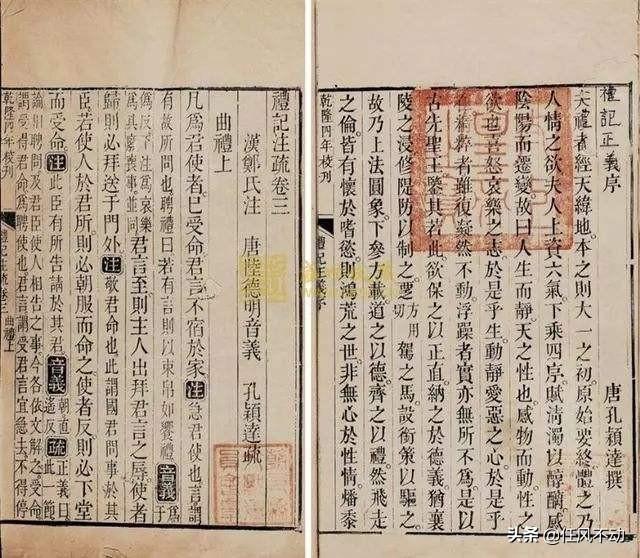 禮記正義序
唐孔穎達撰
夫禮者經天緯地本之則大一之初原始要終體之乃
人情之欲夫人上資六氣下乘四序賦清濁以醇醨感
陰陽而遷變故曰人生而靜天之性也感物而動性之
欲也喜怒哀樂之志於是乎生動靜愛惡之心於是乎
在精粹者雖復凝然不動浮躁者實亦無所不為是以
古先聖王鑒其若此欲保之以正直納之於德義猶襄
陵之浸修隄防以制之覂方用駕之馬設銜策以驅之
故乃上法圓象下參方載道之以德齊之以禮然飛走
之倫皆有懷於嗜慾則鴻荒之世非無心於性情燔黍
乾隆四年校刊 禮記正義序
禮記注疏卷三
漢鄭氏注 唐陸德明音義 孔穎達疏
曲禮上
凡為君使者已受命君言不宿於家注急君使也言謂
有故所問也聘禮曰若有言則以束帛如饗禮音義為于
偽反下注為哀樂為其廢喪事皆同君言至則主人出拜君言之辱使者
歸則必拜送于門外注敬君命也此謂國君問事於其
臣若使人於君所則必朝服而命之使者反則必下堂
而受命注此臣有所告請於其君音義朝直遙反疏正義曰此一節
論聘問及君臣使人相告之事今各依文解之受命
謂受得君言為聘使也君言謂受君言宜急去不得停
乾隆四年校刊 禮記注疏卷三曲禮上
头条 @任风不动